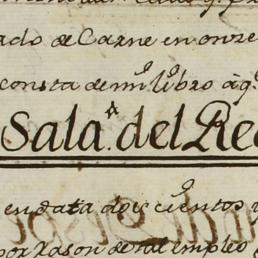 ado de Carne en onze
consta de mi libro à q.
Sala.ᴬ del Re
en data doscientos
por razon de tal empleo